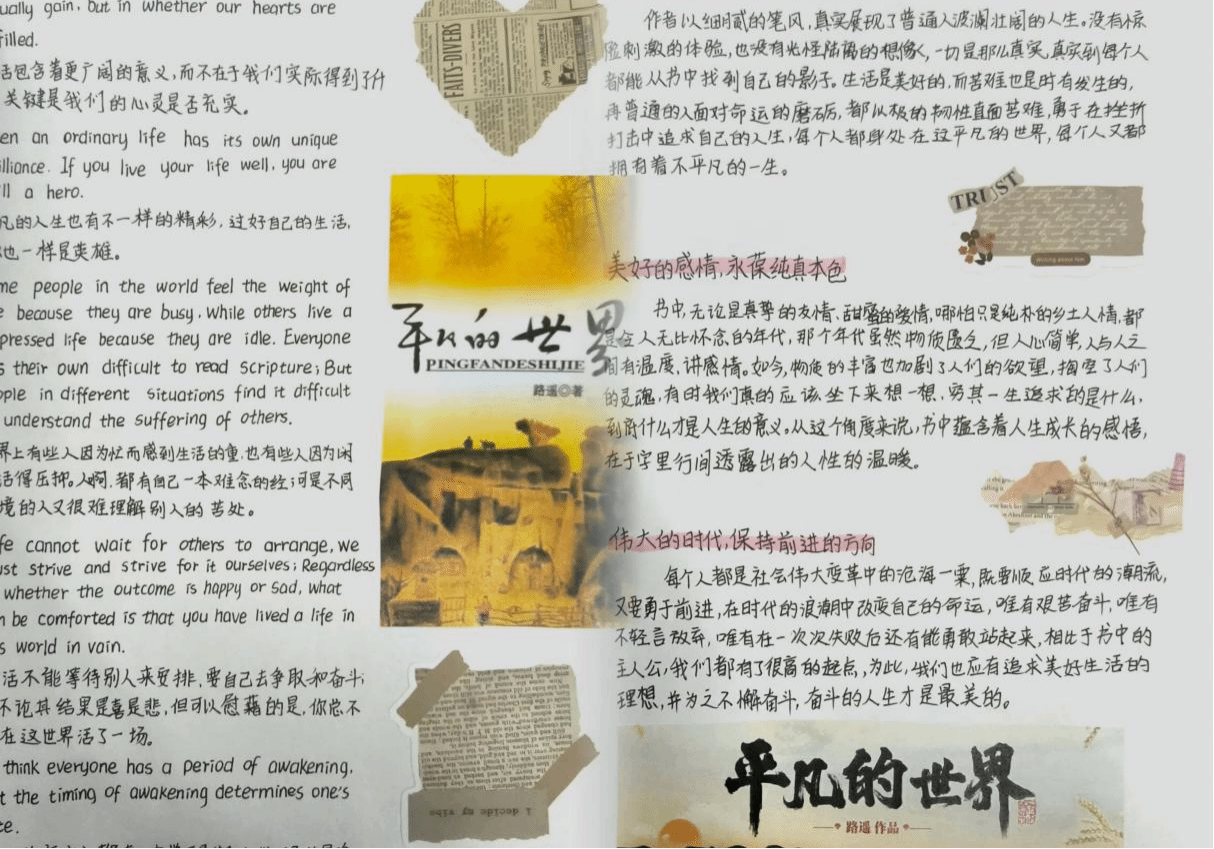 ually gain, but in whether our hearts are
filled.
活包含着更广阔的意义,而不在于我们实际得到了什
关键是我们的心灵是否充实。
en an ordinary life has its own unique
illiance. If you live your life well, you are
ll a hero.
凡的人生也有不一样的精彩,过好自己的生活,
也一样是英雄。
me people in the world feel the weight of
e because they are busy, While others live a
pressed life because they are idle. Everyone
s their own difficult to read scripture; But
ople in different situations find it difficult
understand the suffering of others.
界上有些人因为忙而感到生活的重,也有些人因为闲
活得压抑。人啊,都有自己一本难念的经;可是不同
境的人又很难理解别人的苦处。
fe cannot wait for others to arrange, we
ust strive and strive for it ourselves; Regardless
whether the outcome is happy or sad, what
n be comforted is that you have lived a life in
s world in vain.
活不能等待别人来安排,要自己去争取和奋斗;
不论其结果是喜是悲,但可以慰藉的是,你总不
在这世界活了一场。
think everyone has a period of awakening,
t the timing of awakening determines one's
te.
FAITS-DIVERS
平凡的世界
PINGFANDESHIJIE
路遥◎著
i decide my vibe
作者以细腻的笔风,真实展现了普通人波澜壮阔的人生。没有惊
险刺激的体验,也没有光怪陆离的想像,一切是那么真实,真实到每个人
都能从书中找到自己的影子。生活是美好的,而苦难也是时有发生的,
再普通的人面对命运的磨砺,都以极的韧性直面苦难,勇于在挫折
打击中追求自己的人生,每个人都身处在这平凡的世界,每个人又都
拥有着不平凡的一生。
TRUST
Writing about him
美好的感情,永葆纯真本色
书中,无论是真挚的友情、甜蜜的爱情,哪怕只是纯朴的乡土人情,都
是令人无比怀念的年代,那个年代虽然物质匮乏,但人心简单,人与人之
间有温度,讲感情。如今,物质的丰富也加剧了人们的欲望,掏空了人们
的灵魂,有时我们真的应该坐下来想一想,穷其一生追求的是什么,
到底什么才是人生的意义。从这个角度来说,书中蕴含着人生成长的感悟,
在于字里行间透露出的人性的温暖。
伟大的时代,保持前进的方向
每个人都是社会伟大变革中的沧海一粟,既要顺应时代的潮流,
又要勇于前进,在时代的浪潮中改变自己的命运,唯有艰苦奋斗,唯有
不轻言放弃,唯有在一次次失败后还有能勇敢站起来,相比于书中的
主人公,我们都有了很高的起点,为此,我们也应有追求美好生活的
理想,并为之不懈奋斗,奋斗的人生才是最美的。
平凡的世界
路遥 作品